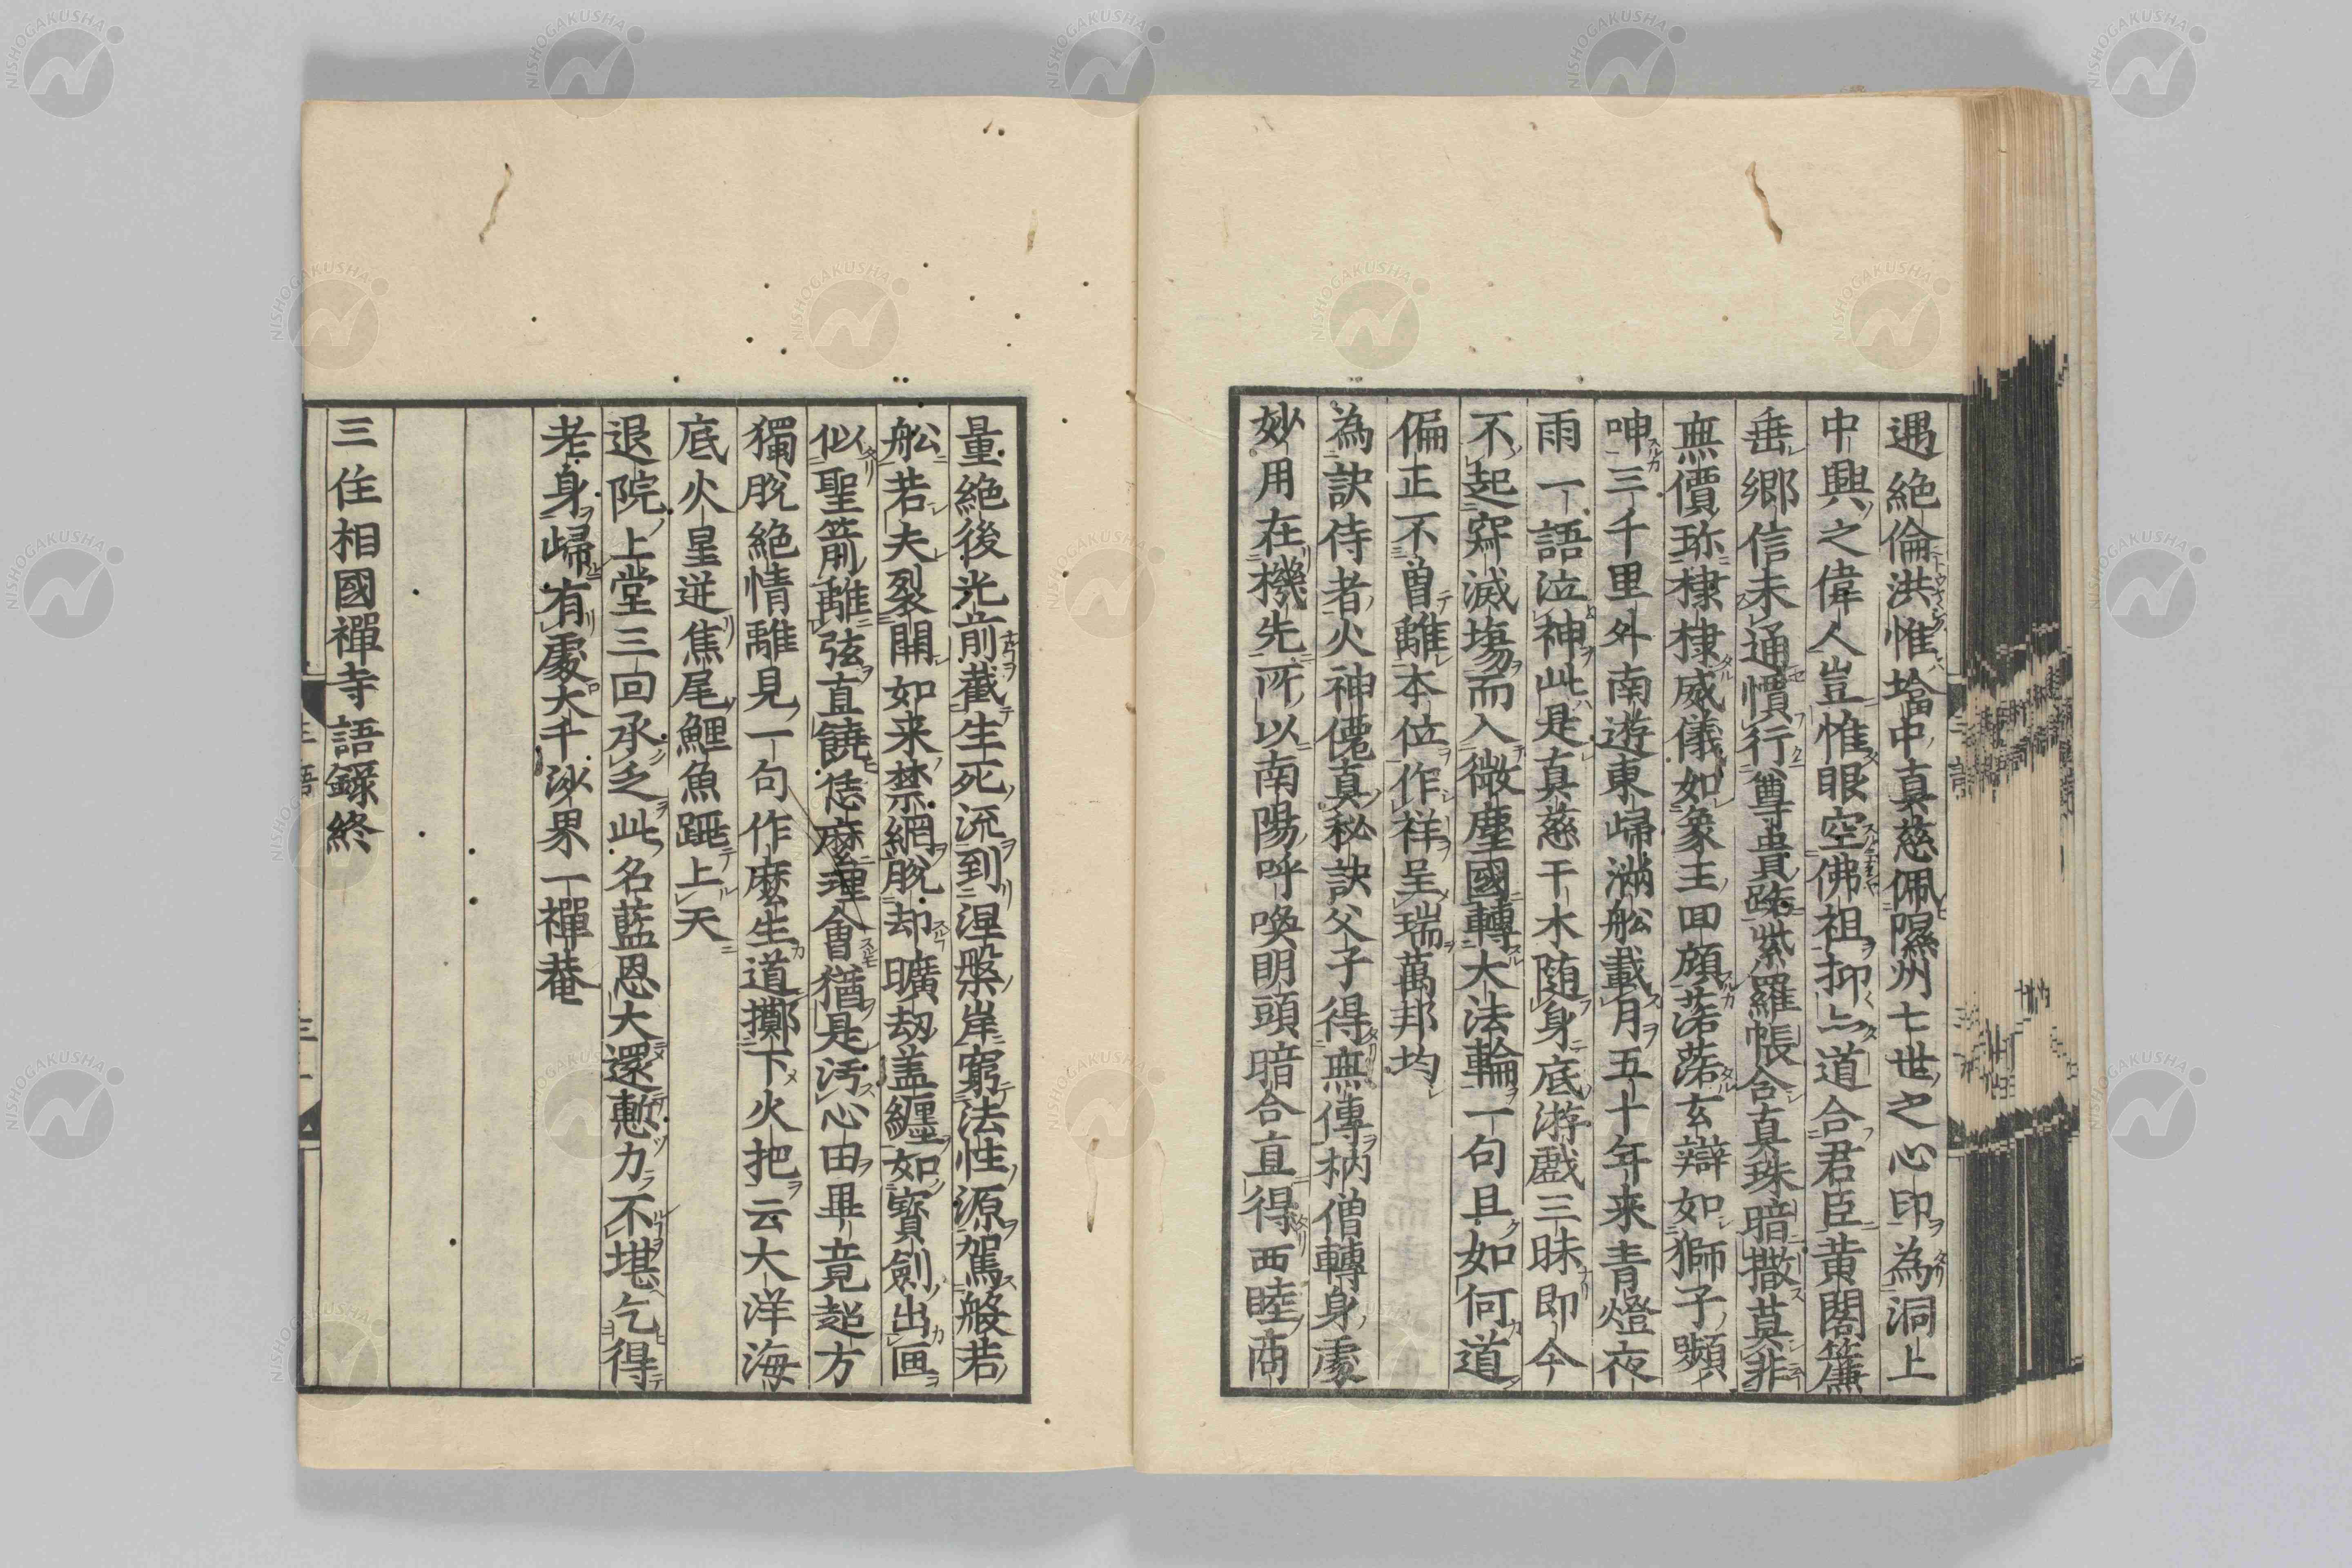 遇絶倫洪惟壒中真慈佩隰州七世之心印為洞上
中興之偉人豈惟眼空佛祖抑亦道合君臣黄閣簾
垂鄉信未通慣行尊貴路紫羅帳合真珠暗撒莫非
無價珎棣棣威儀如象王回顧落落玄辯如獅子顰
呻三千里外南遊東歸滿舩載月五十年来青燈夜
雨一語泣神此是真慈干木随身底游戲三昧即今
不起寂滅塲而入微塵國轉大法輪一句且如何道
偏正不曽離本位作祥呈瑞萬邦均
為訣侍者火神僊真秘訣父子得無傳衲僧轉身處
妙用在機先所以南陽呼喚明頭暗合直得西睦商
量絶後光前截生死流到涅槃岸窮法性源駕般若
舩若夫裂開如来禁網脱却曠劫盖纏如寶劍出匣
似聖箭離弦直饒恁麼理會猶是汚心田畢竟超方
獨脱絶情離見一句作麼生道擲下火把云大洋海
底火星迸焦尾鯉魚跳上天
退院上堂三回承乏此名藍恩大還慙力不堪乞得
老身歸有處大千沙界一禪菴
三住相國禪寺語録終